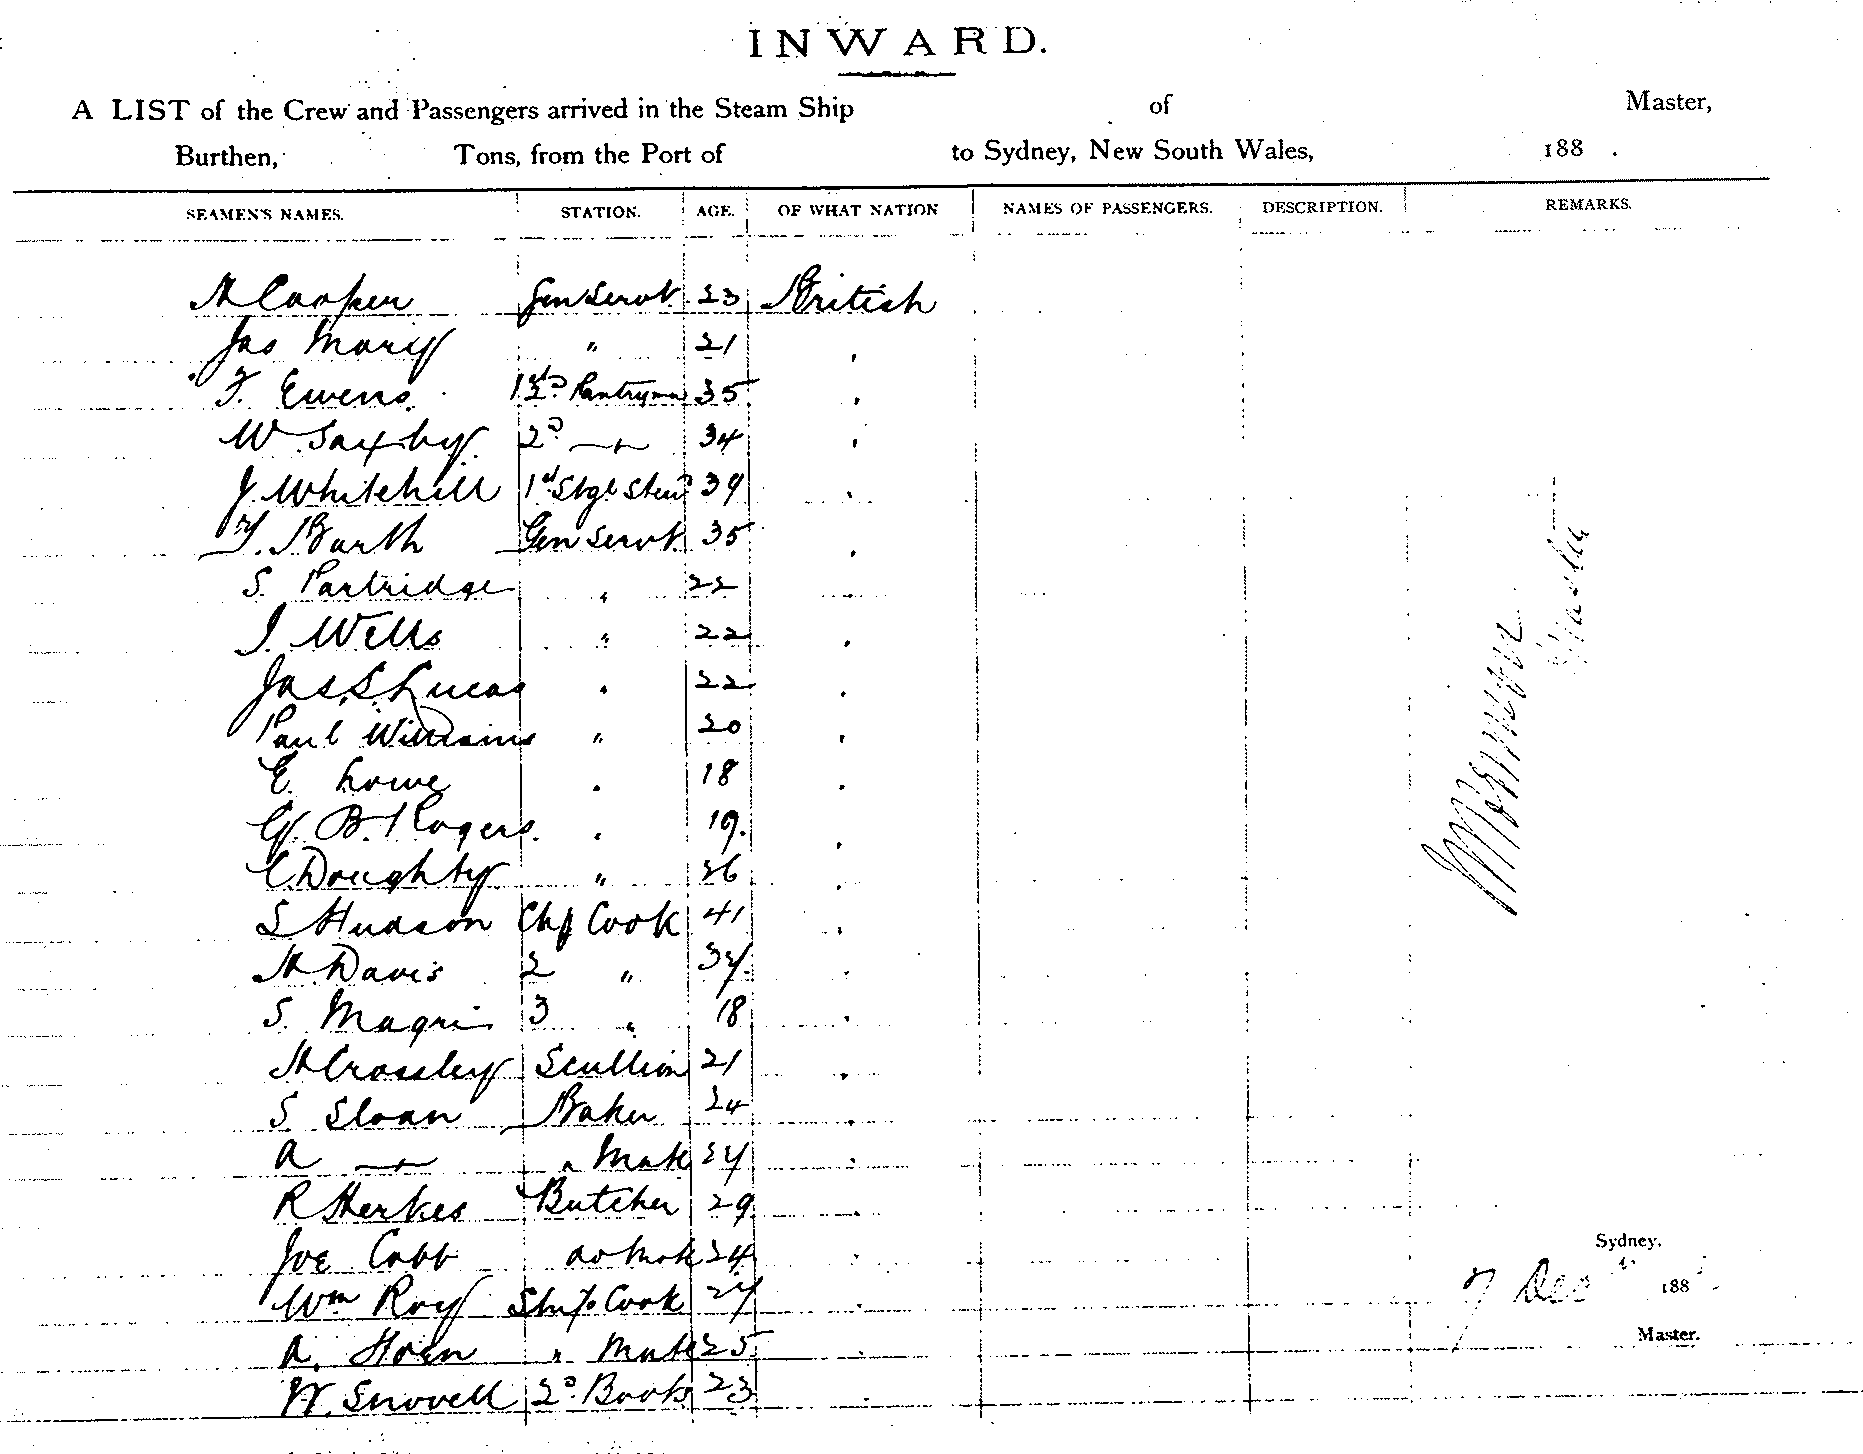 INWARD.
A LIST of the Crew and Passengers arrived in the Steam Ship of Master,
Burthen, Tons, from the Port of to Sydney, New South Wales, 188 .
SEAMEN'S NAMES. STATION. AGE. OF WHAT NATION NAMES OF PASSENGERS. DESCRIPTION. REMARKS.
H Cooper Gen Servt 23 British
Jas 〃 21
F. Ewens 1st Pantryman 35
W Saxby 2D 34
J. Whitehill 1st Stge Stewd 39
Barth Gen Servt 35
S. Partridge 〃 22
J. Wells 〃 22
Jas. S Lucas 〃 22
Paul Williams 〃 20
E Lowe 〃 18
G. B. Rogers 〃 19
C. Doughty 〃 26
S Hudson Chf Cook 41
H Davis 2 〃
S. Magri 3 〃 18
H Crossley Scullion 21
S Sloan Baker 24
A 〃 Mate
R Herkes Butcher 29
Joe Cobb do Mate 24
Wm Roy Ship's Cook
A. Horn 〃 Mate 25
W. Snovell 2D Books 23
Master
Sydney.
7 Dec 188
Master.